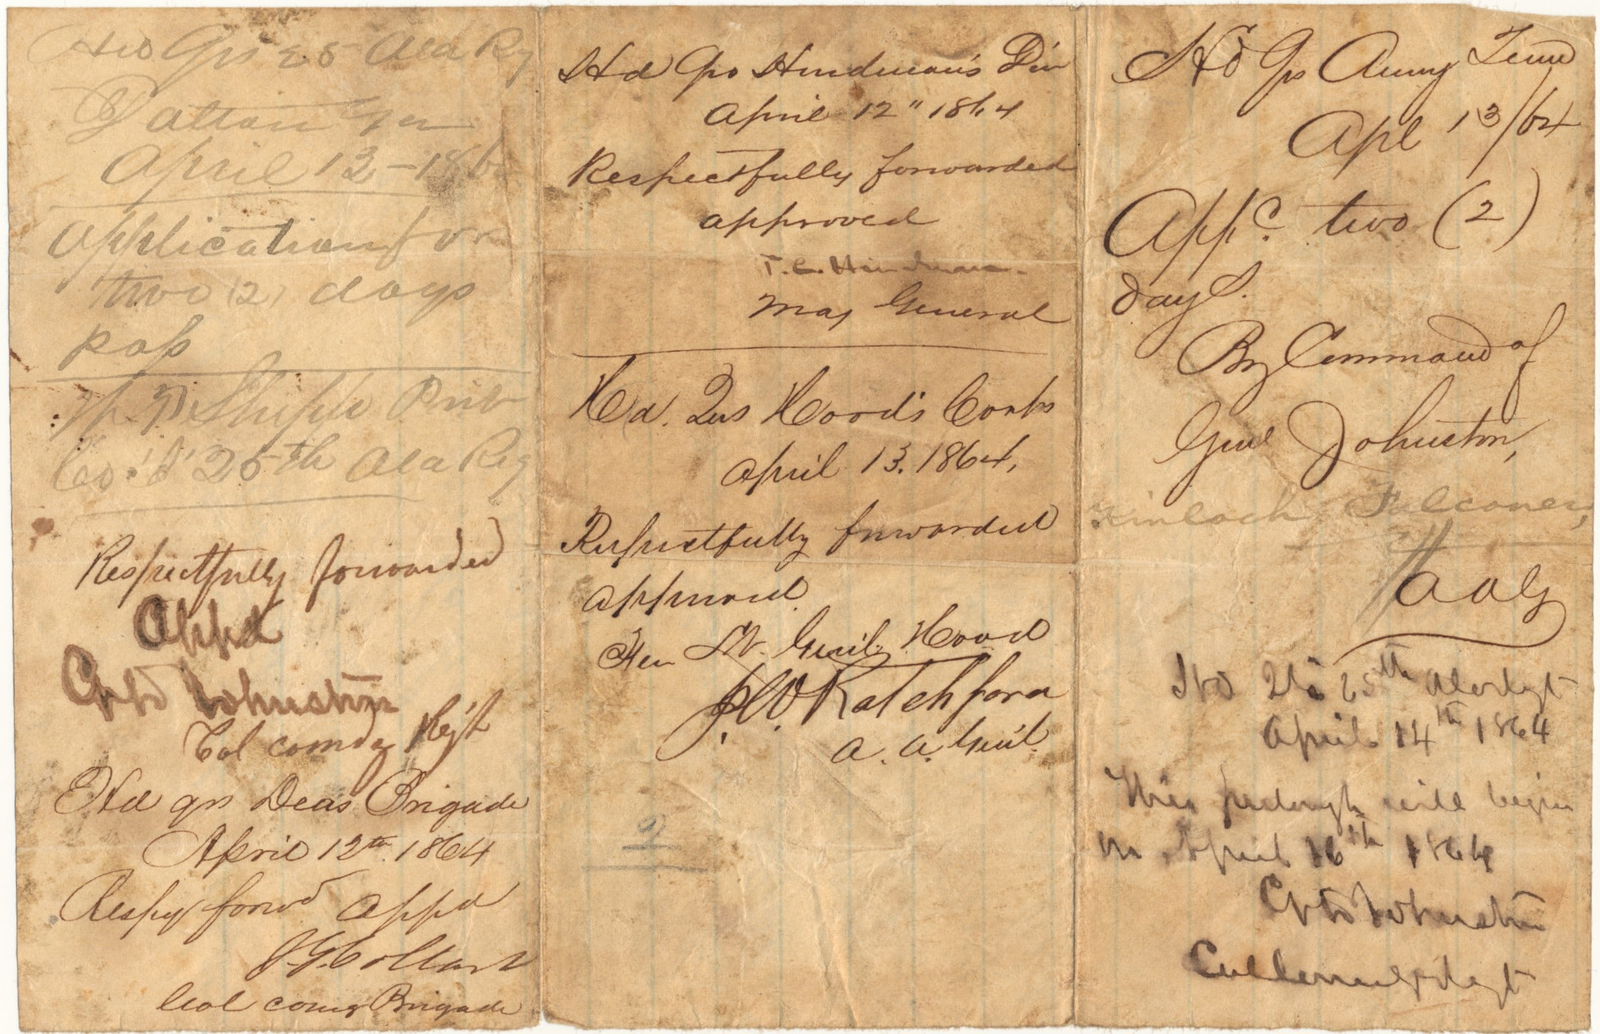 Hd Qrs 25 Ala Rg
Dalton Ga
April 13 - 186
Application for
two (2) days
pass
Shipp Priv
Co. 25th Ala Reg
Respectfully forwarded
Appd
Johnston
Col comdg Regt
Hd qrs Deas Brigade
April 12th 1864
Respy forwd appd
J. G. Coltart
Col comg Brigade
Hd Qrs Hindman's Div
April 12" 1864
Respectfully forwarded
approved
T. C. Hindman
Maj General
Hd. Qrs Hood's Corps
April 13. 1864,
Respectfully forwarded
approved
Lt. Genl. Hood
J. W. Ratchford
A. A. Genl.
2
Hd Qrs Army Tenn
Apl 13/64
App.d two (2)
days.
By Command of
Genl Johnston,
Kinloch Falconer,
A A G
Hd Qts 25th Ala Regt
April 14th 1864
This furlough will begin
on April 16th 1864
Johnston
Col Comdg Regt